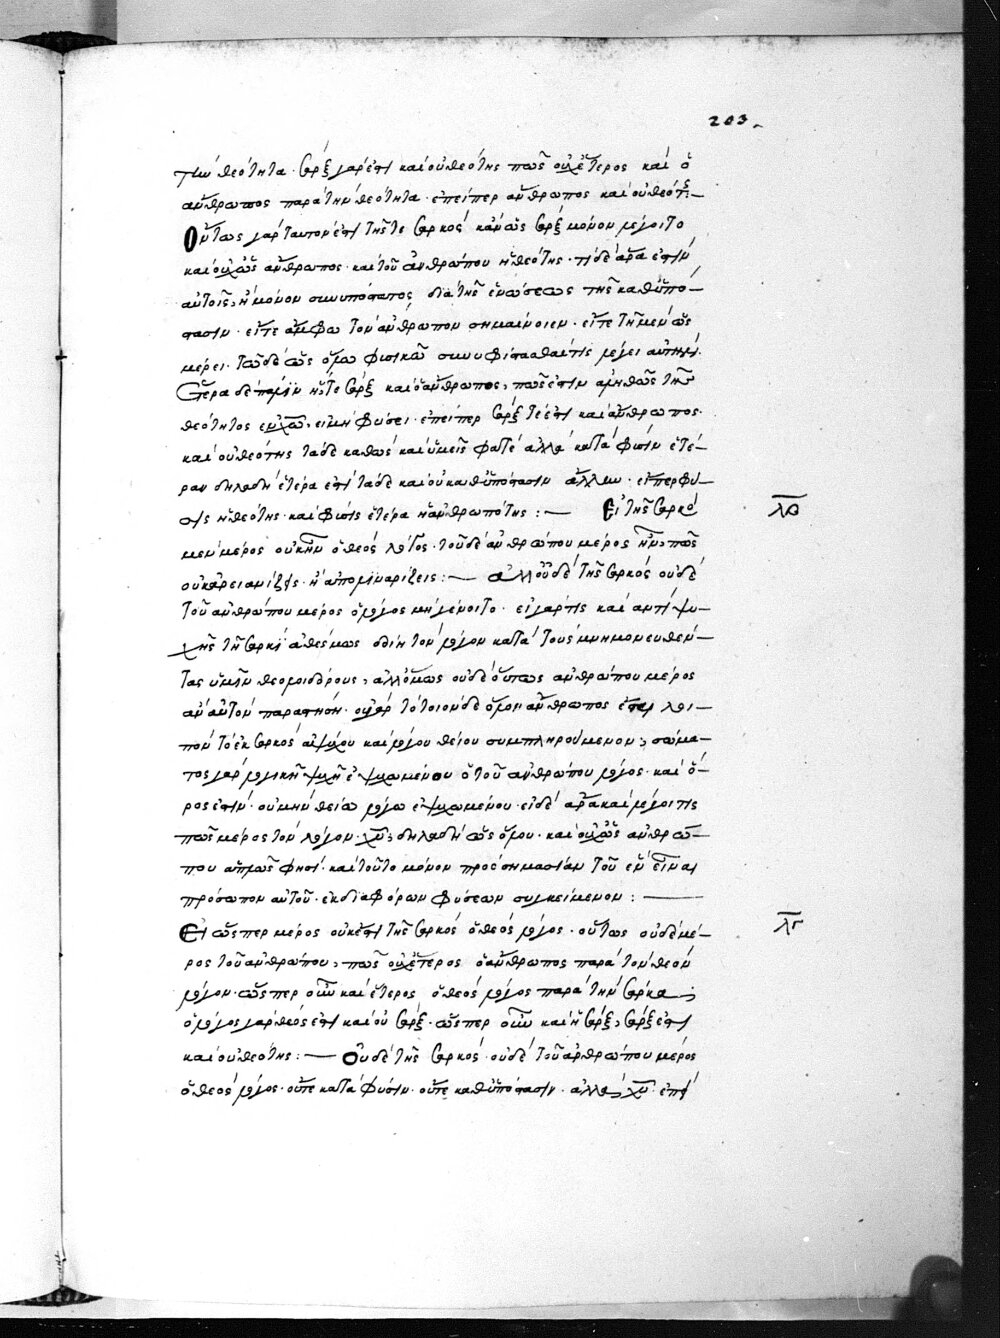 203
τὴν θεότητα· σάρξ γάρ ἐστι καὶ οὐ θεότης πῶς οὐχ ἕτερος καὶ ὁ
ἄνθρωπος παρὰ τὴν θεότητα· ἐπείπερ ἄνθρωπος καὶ οὐ θεότης–
Ὄντως γὰρ ταυτόν ἐστι τῆς τε σαρκός κἂν ὡς σάρξ μόνον λέγοιτο
καὶ οὐχ ὡς ἄνθρωπος· καὶ τοῦ ἀνθρώπου ἡ θεότης· τί δὲ ἄρα ἐστὶν
αὐτοῖς, ἢ μόνον συνυπόστατος διὰ τῆς ἑνώσεως τῆς καθ' ὑπό–
στασιν· εἴτε ἄμφω τὸν ἄνθρωπον σημαίνοιεν· εἴτε τῇ μὲν ὡς
μέρει· τῷ δὲ ὡς ὅλῳ φυσικῶς συνυφίστασθαί τις λέγει αὐτήν·
Ἑτέρα δὲ πάλιν ἥτε σάρξ καὶ ὁ ἄνθρωπος, πῶς ἐστιν ἀμήθως τῆς
θεότητος ἐν χῶ, εἰ μὴ φύσει· ἐπείπερ σάρξ τέ ἐστι καὶ ἄνθρωπος·
καὶ οὐ θεότης τάδε καθὼς καὶ ὑμεῖς φατέ ἀλλὰ κατὰ φύσιν ἑτέ–
ραν δηλαδὴ ἑτέρα ἐστὶ τάδε καὶ οὐ καθ' ὑπόστασιν ἄλλην· εἴπερ φύ–
σις ἡ θεότης· καὶ φύσις ἑτέρα ἡ ἀνθρωπότης :— Εἰ τῆς σαρκὸς
λβ
μὲν μέρος οὐκ ἦν ὁ θεὸς λόγος· τοῦ δὲ ἀνθρώπου μέρος ἦν, πῶς
οὐκ ἀρειανίζεις· ἢ ἀπολιναρίζεις :— ἀλλ' οὐδὲ τῆς σαρκός οὐδὲ
τοῦ ἀνθρώπου μέρος ὁ λόγος μὴ γένοιτο· εἰ γάρ τις καὶ ἀντὶ ψυ–
χῆς τῇ σαρκὶ ἀθέσμως δοίη τὸν λόγον κατὰ τοὺς μνημονευθέν–
τας ὑμῖν θεομισθέρους, ἀλλ' ὅμως οὐδὲ οὕτως ἀνθρώπου μέρος
ἂν αὐτὸν παραστήσῃ· οὐ γὰρ τὸ τοιόνδε ὅλον ἄνθρωπος ἔσται λοι–
πὸν τὸ ἐκ σαρκός ἀψύχου καὶ λόγου θείου συμπληρούμενον, σώμα–
τος γὰρ λογικῇ ψυχῇ ἐψυχωμένου ὁ τοῦ ἀνθρώπου λόγος· καὶ ὅ–
ρος ἐστίν· οὐ μὴν θείω λόγω ἐψυχωμένου· εἰ δὲ ἄρα καὶ λέγοι τις
πῶς μέρος τὸν λόγον· χῦ, δηλαδὴ ὡς ὅλου· καὶ οὐχ ὡς ἀνθρώ–
που ἁπλῶς φησί· καὶ τοῦτο μόνον πρὸς σημασίαν τοῦ ἓν εἶναι
πρόσωπον αὐτοῦ· ἐκ διαφόρων φύσεων συγκείμενον :——
Εἰ ὥσπερ μέρος οὐκ ἔστι τῆς σαρκός ὁ θεός λόγος· οὕτως οὐδὲ μέ–
λγ
ρος τοῦ ἀνθρώπου, πῶς οὐχ ἕτερος ὁ ἄνθρωπος παρὰ τὸν θεὸν
λόγον· ὥσπερ οὖν καὶ ἕτερος ὁ θεός λόγος παρὰ τὴν σάρκα,
ὁ λόγος γὰρ θεός ἐστι καὶ οὐ σάρξ· ὥσπερ οὖν καὶ ἡ σάρξ, σάρξ ἐστι
καὶ οὐ θεότης :— Οὐδὲ τῆς σαρκός· οὐδὲ τοῦ ἀνθρώπου μέρος
ὁ θεός λόγος· οὔτε κατὰ φύσιν· οὔτε καθ' ὑπόστασιν· ἀλλὰ χῦ· ἐπεὶ